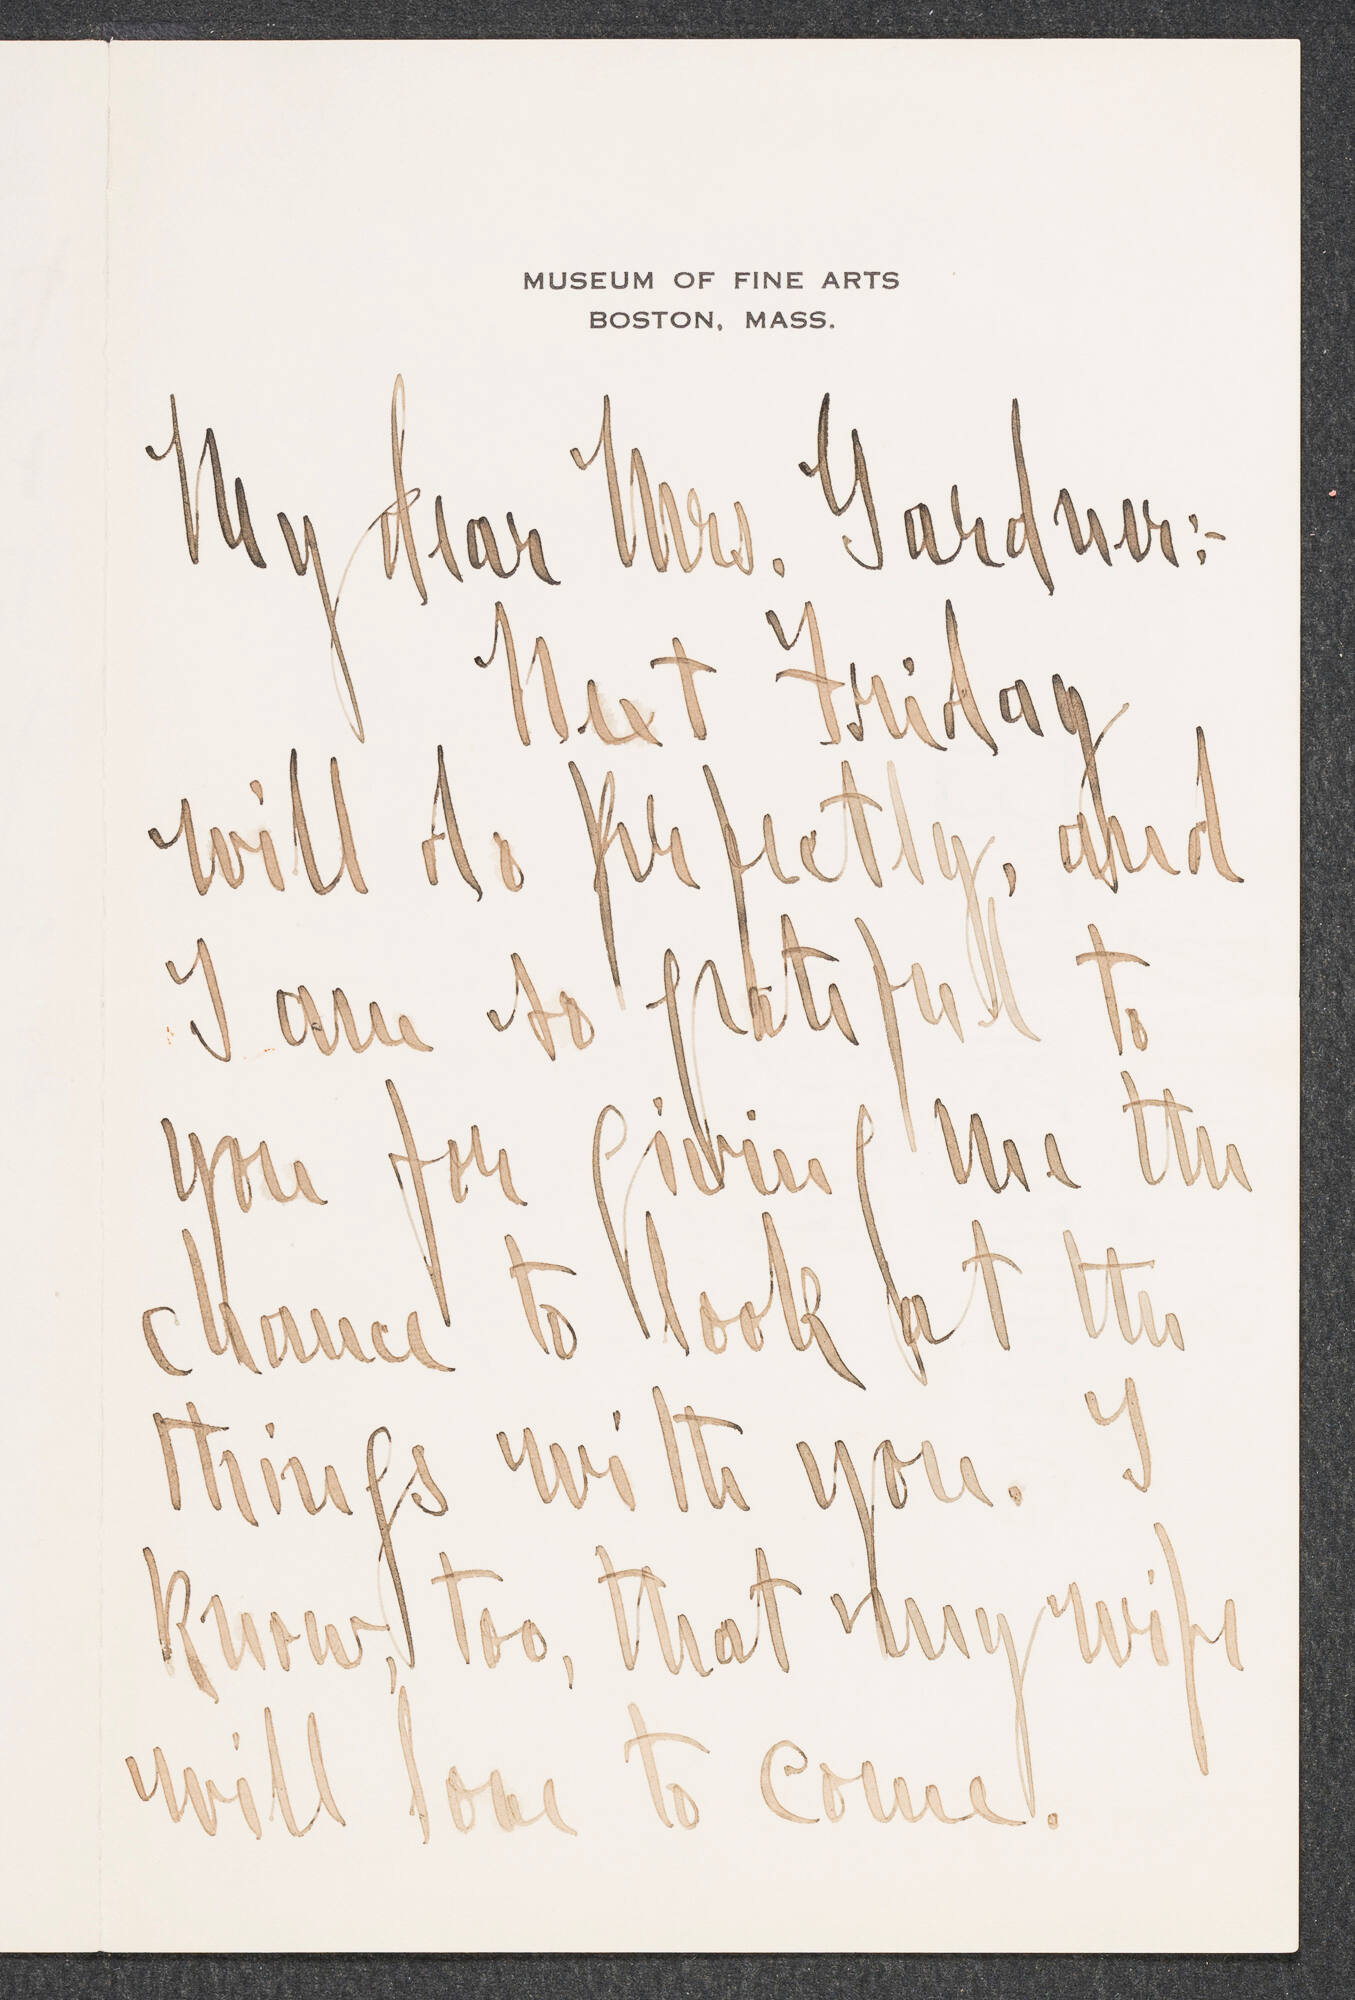 MUSEUM OF FINE ARTS
BOSTON, MASS.
My dear Mrs. Gardner:-
Next Friday
will do perfectly, and
I am so grateful to
you for giving me the
chance to look at the
things with you. I
know, too, that my wife
will love to come.